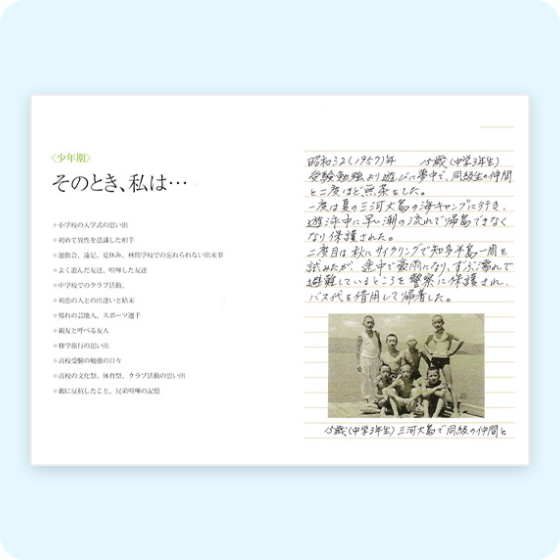 〈少年期〉
そのとき、私は…
小学校の入学式の思い出
初めて異性を意識した相手
運動会、遠足、夏休み、林間学校での忘れられない出来事
よく遊んだ友達、喧嘩した友達
中学校でのクラブ活動。
初恋の人との出逢いと結末
憧れの芸能人、スポーツ選手
親友と呼べる友人
修学旅行の思い出
高校受験の勉強の日々
高校の文化祭、体育祭、クラブ活動の思い出
親に反抗したこと、兄弟喧嘩の記憶
昭和32(1957)年 15歳(中学3年生)
受験勉強より遊びに夢中で、同級生の仲間
と二度ほど無茶をした。
一度は夏の三河大島の海キャンプに行き、
遊泳中に早い潮の流れで帰島できなく
なり保護された。
二度目は秋にサイクリングで知多半島一周を
試みたが、途中で豪雨になり、ずぶ濡れで
避難しているところを警察に保護され、
バス代を借用して帰着した。
15歳(中学3年生)三河大島で同級の仲間と